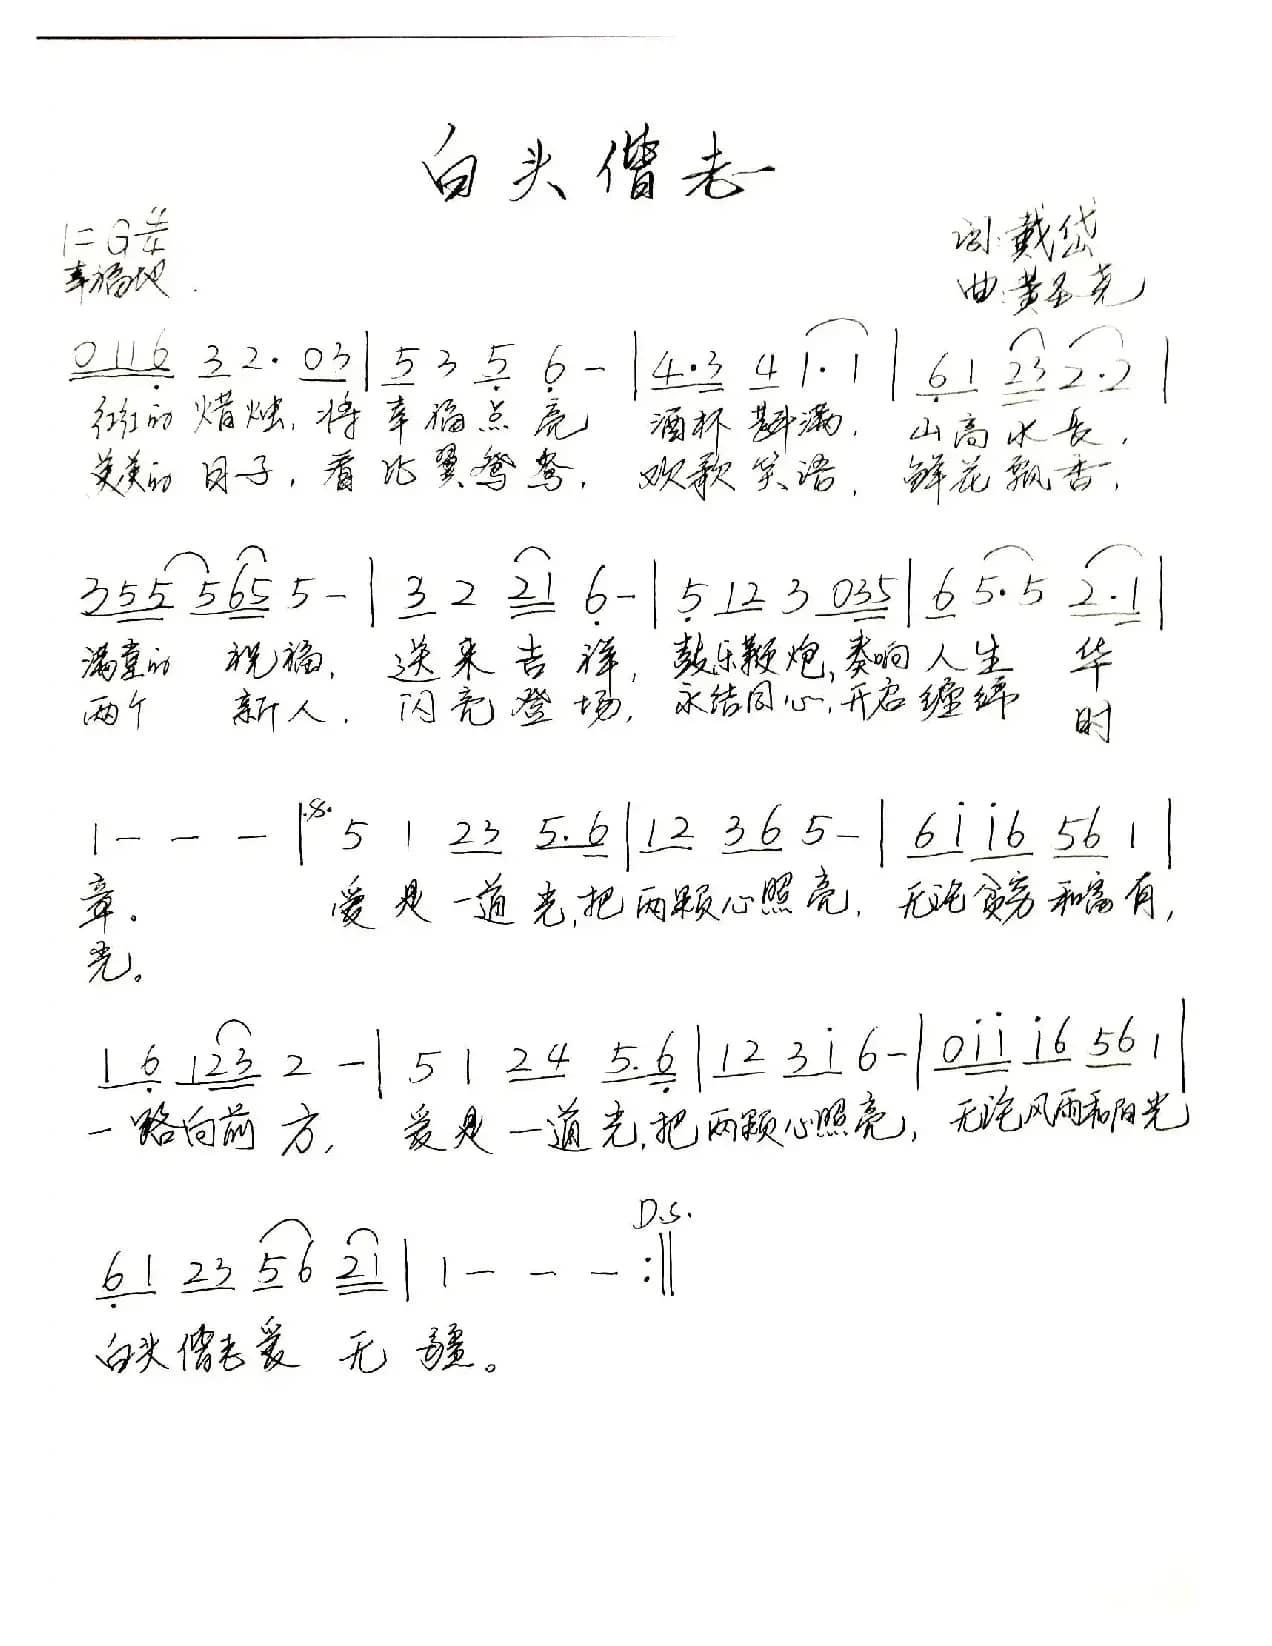 白头偕老
1=G 4/4
幸福地
词:戴岱
曲:黄圣尧
0116 32· 03 | 5 3 5 6 - | 4·3 4 1·1 | 61 23 2·2 |
红红的 蜡烛, 将幸福点亮 酒杯斟满, 山高水长,
美美的 日子, 看比翼鸳鸯, 欢歌笑语, 鲜花飘香,
355 565 5 - | 3 2 21 6 - | 5 12 3 035 | 6 5·5 2·1 |
满堂的 祝福, 送来吉祥, 鼓乐鞭炮,奏响人生 华
两个 新人, 闪亮登场, 永结同心,开启缠绵 时
1 - - - | 5 1 23 5·6 | 12 36 5 - | 61 16 56 1 |
章. 爱是一道光,把两颗心照亮, 无论贫穷和富有,
光。
16 123 2 - | 5 1 24 5·6 | 12 31 6 - | 011 16 56 1 |
一路向前方, 爱是一道光,把两颗心照亮, 无论风雨和阳光
D.S.
61 23 56 21 | 1 - - - :||
白头偕老爱 无 疆。